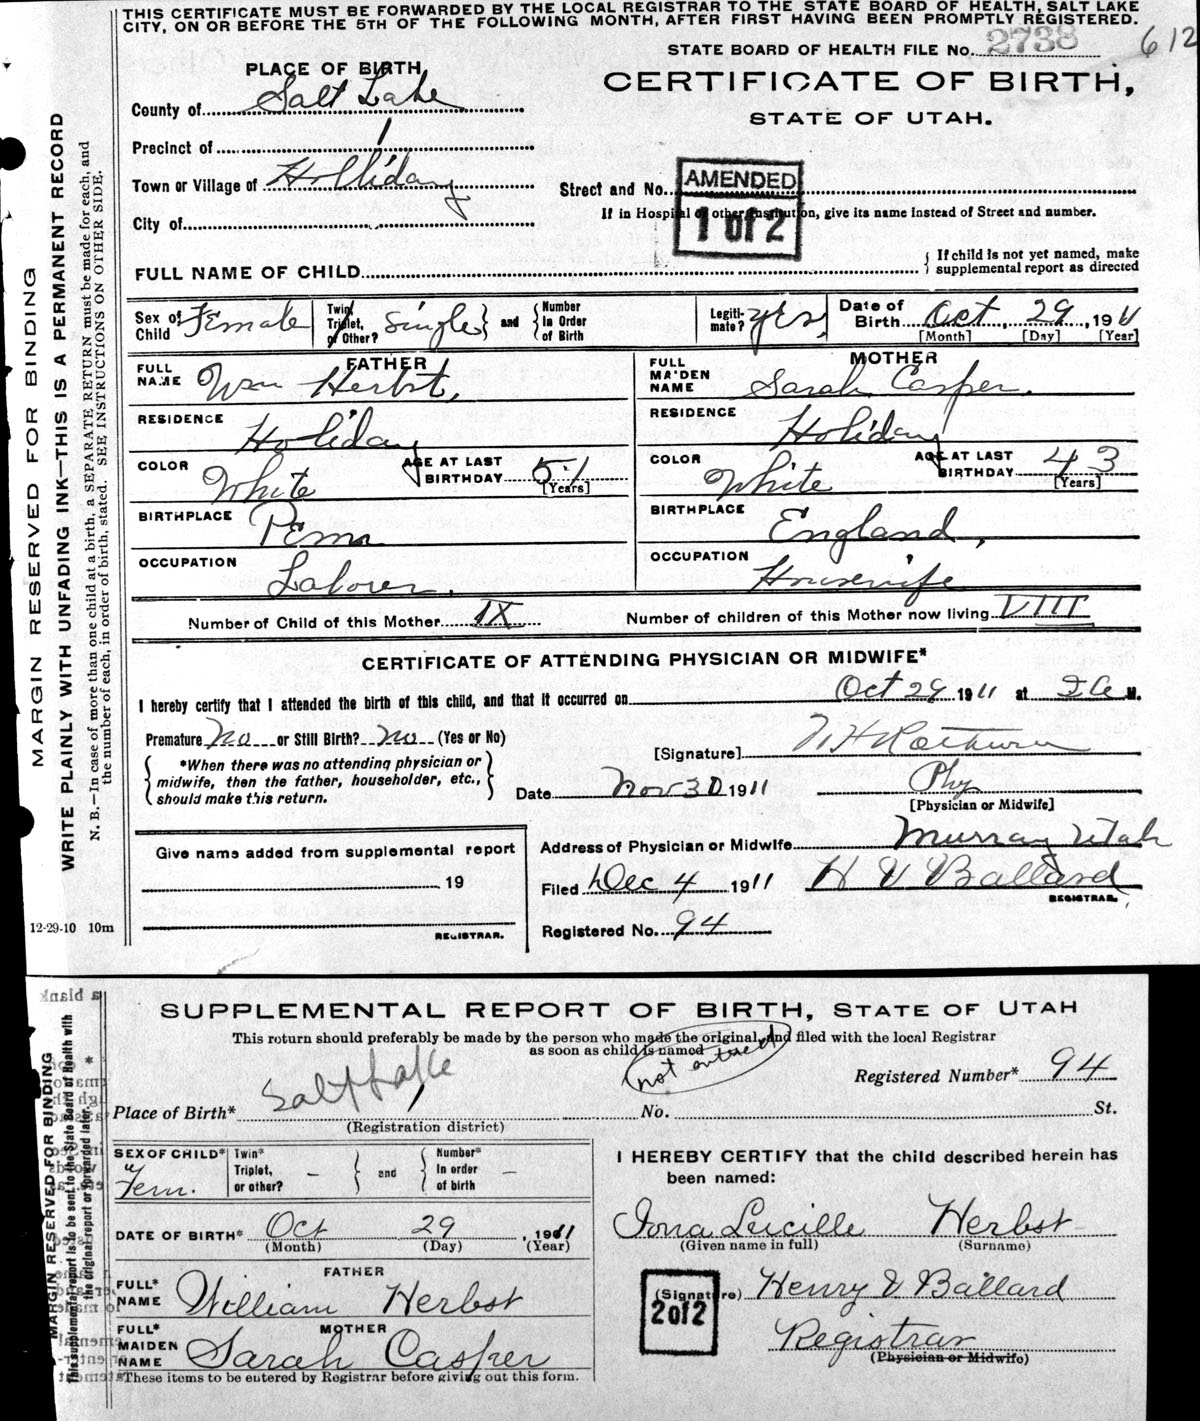 THIS CERTIFICATE MUST BE FORWARDED BY THE LOCAL REGISTRAR TO THE STATE BOARD OF HEALTH, SALT LAKE
CITY, ON OR BEFORE THE 5TH OF THE FOLLOWING MONTH, AFTER FIRST HAVING BEEN PROMPTLY REGISTERED.
STATE BOARD OF HEALTH FILE No. 2738 612
PLACE OF BIRTH
CERTIFICATE OF BIRTH,
STATE OF UTAH.
County of Salt Lake
Precinct of 1
Town or Village of Holliday
Street and No.
AMENDED
1 of 2
If in Hospital or other Institution, give its name instead of Street and number.
City of
FULL NAME OF CHILD
{ If child is not yet named, make supplemental report as directed
Sex of Child Female
Twin, Triplet, or Other? Single } and { Number In Order of Birth
Legitimate? yes,
Date of Birth Oct, 29, 1911
[Month] [Day] [Year]
FATHER
FULL NAME Wm Herbst,
MOTHER
FULL MAIDEN NAME Sarah Casper.
RESIDENCE Holiday
RESIDENCE Holiday
COLOR White AGE AT LAST BIRTHDAY 51 [Years]
COLOR White AGE AT LAST BIRTHDAY 43 [Years]
BIRTHPLACE Penn
BIRTHPLACE England,
OCCUPATION Laborer,
OCCUPATION Housewife
Number of Child of this Mother IX Number of children of this Mother now living VIII
CERTIFICATE OF ATTENDING PHYSICIAN OR MIDWIFE*
I hereby certify that I attended the birth of this child, and that it occurred on Oct 29 1911 at M.
Premature No or Still Birth? No (Yes or No)
[Signature]
{ *When there was no attending physician or midwife, then the father, householder, etc., should make this return. }
Date Nov 30 1911 Phy
[Physician or Midwife]
Give name added from supplemental report
19
REGISTRAR.
Address of Physician or Midwife Murray Utah
Filed Dec 4 1911 H V Ballard
REGISTRAR.
Registered No. 94
12-29-10 10m
MARGIN RESERVED FOR BINDING
WRITE PLAINLY WITH UNFADING INK—THIS IS A PERMANENT RECORD
N. B.—In case of more than one child at a birth, a SEPARATE RETURN must be made for each, and
the number of each, in order of birth, stated. SEE INSTRUCTIONS ON OTHER SIDE.
SUPPLEMENTAL REPORT OF BIRTH, STATE OF UTAH
This return should preferably be made by the person who made the original, and filed with the local Registrar
as soon as child is named
not entered
Registered Number* 94
Place of Birth* Salt Lake No. St.
(Registration district)
SEX OF CHILD* Fem.
Twin* Triplet, or other? – } and { Number* In order of birth –
I HEREBY CERTIFY that the child described herein has
been named:
DATE OF BIRTH* Oct 29, 1911
(Month) (Day) (Year)
Iona Lucille Herbst
(Given name in full) (Surname)
FATHER
FULL* NAME William Herbst
(Signature) Henry V Ballard
2 of 2
Registrar
(Physician or Midwife)
MOTHER
FULL* MAIDEN NAME Sarah Casper
*These items to be entered by Registrar before giving out this form.
MARGIN RESERVED FOR BINDING
This supplemental report is to be sent to the State Board of Health with
the original report or forwarded later.